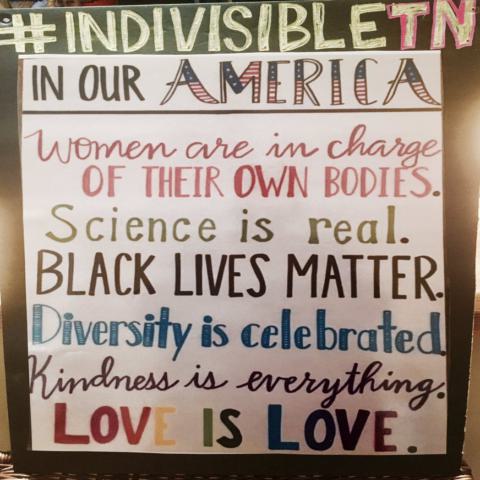 #INDIVISIBLETN
IN OUR AMERICA
Women are in charge
OF THEIR OWN BODIES.
Science is real.
BLACK LIVES MATTER.
Diversity is celebrated.
Kindness is everything.
LOVE IS LOVE.